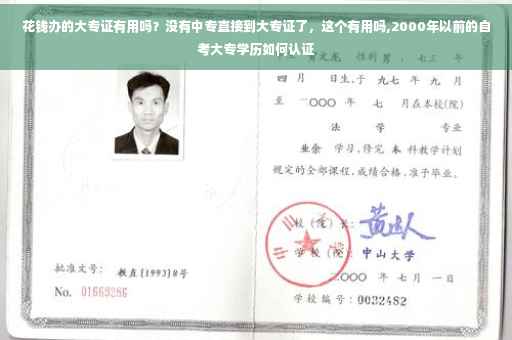 花钱办的大专证有用吗？没有中专直接到大专证了，这个有用吗,2000年以前的自
考大专学历如何认证
四 月 日生,于 九七 年 九 月
至 二〇〇〇 年 七 月在本校(院)
法 学 专业
业余 学习,修完 本 科教学计划
规定的全部课程,成绩合格,准予毕业。
校（院）长：
学 校（院） 中山大学
二〇〇〇 年 七 月 一 日
批准文号： 教直(1993)8号
No. 01669286
学校编号：0032482